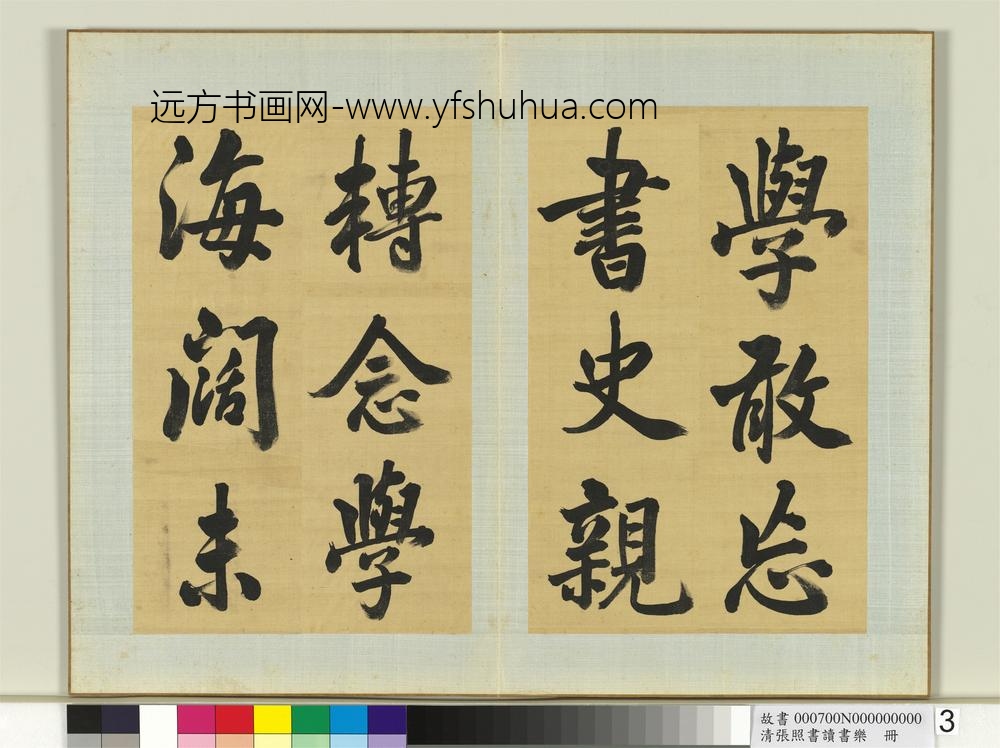 远方书画网-www.yfshuhua.com
學敢忘
書史親
轉念學
海闊未
故書 000700N000000000
清張照書讀書樂 冊
3